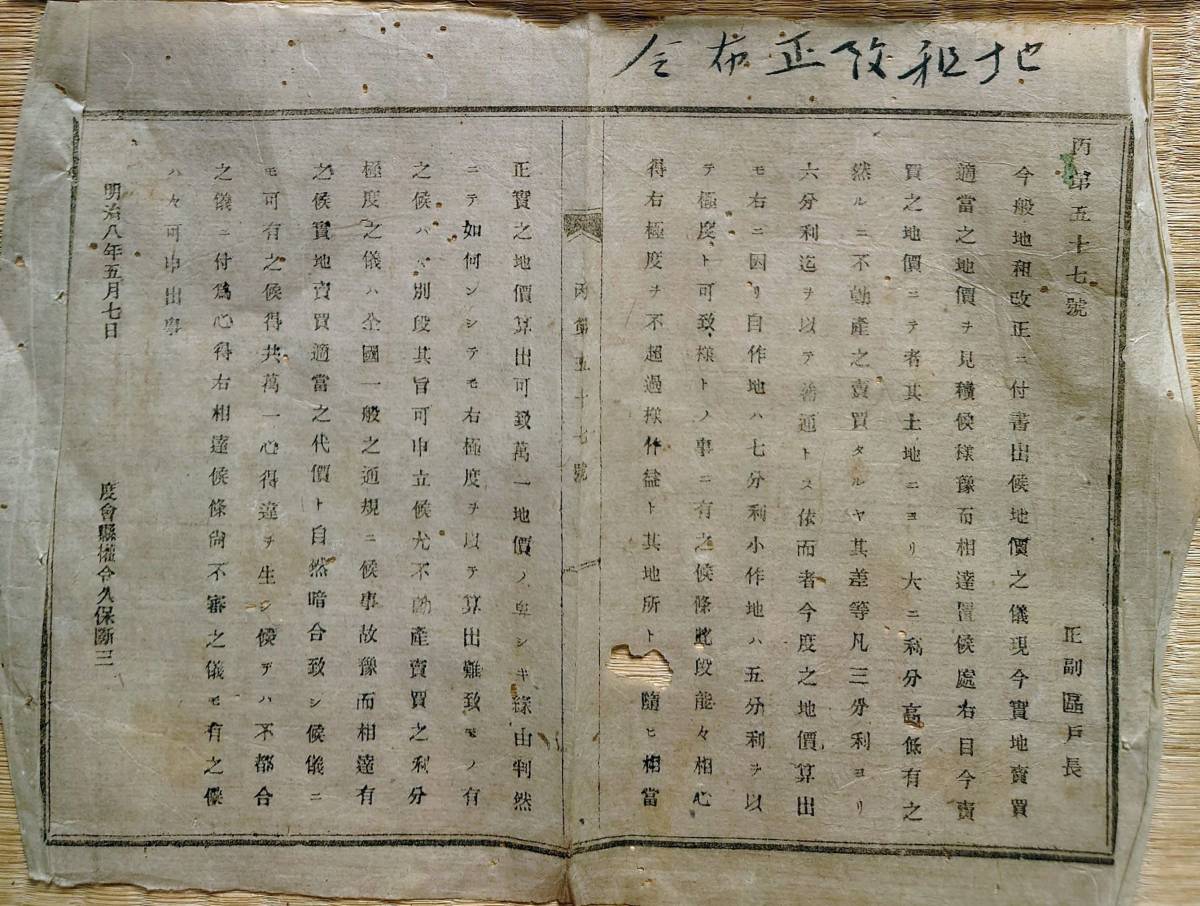 地租改正布令
丙第五十七號
正副區戶長
今般地租改正ニ付書出候地價之儀現今實地賣買
適當之地價ヲ見積候樣豫而相達置候處右目今賣
買之地價ニテ者其土地ニヨリ大ニ利分高低有之
然ルニ不動產之賣買タルヤ其差等凡三分利ヨリ
六分利迄ヲ以テ普通トス依而者今度之地價算出
モ右ニ因リ自作地ハ七分利小作地ハ五分利ヲ以
テ極度ト可致樣トノ事ニ有之候條此段能々相心
得右極度ヲ不超過樣作益ト其地所ト隨ヒ相當
丙第五十七號
正實之地價算出可致萬一地價ノ卑シキ緣由判然
ニテ如何ンシテモ右極度ヲ以テ算出難致モノ有
之候ハヽ別段其旨可申立候尤不動產賣買之利分
極度之儀ハ全國一般之通規ニ候事故豫而相達有
之候實地賣買適當之代價ト自然暗合致シ候儀ニ
モ可有之候得共萬一心得違ヲ生シ候デハ不都合
之儀ニ付爲心得右相達候條尙不審之儀モ有之候
ハ々可申出事
明治八年五月七日
度會縣權令久保斷三